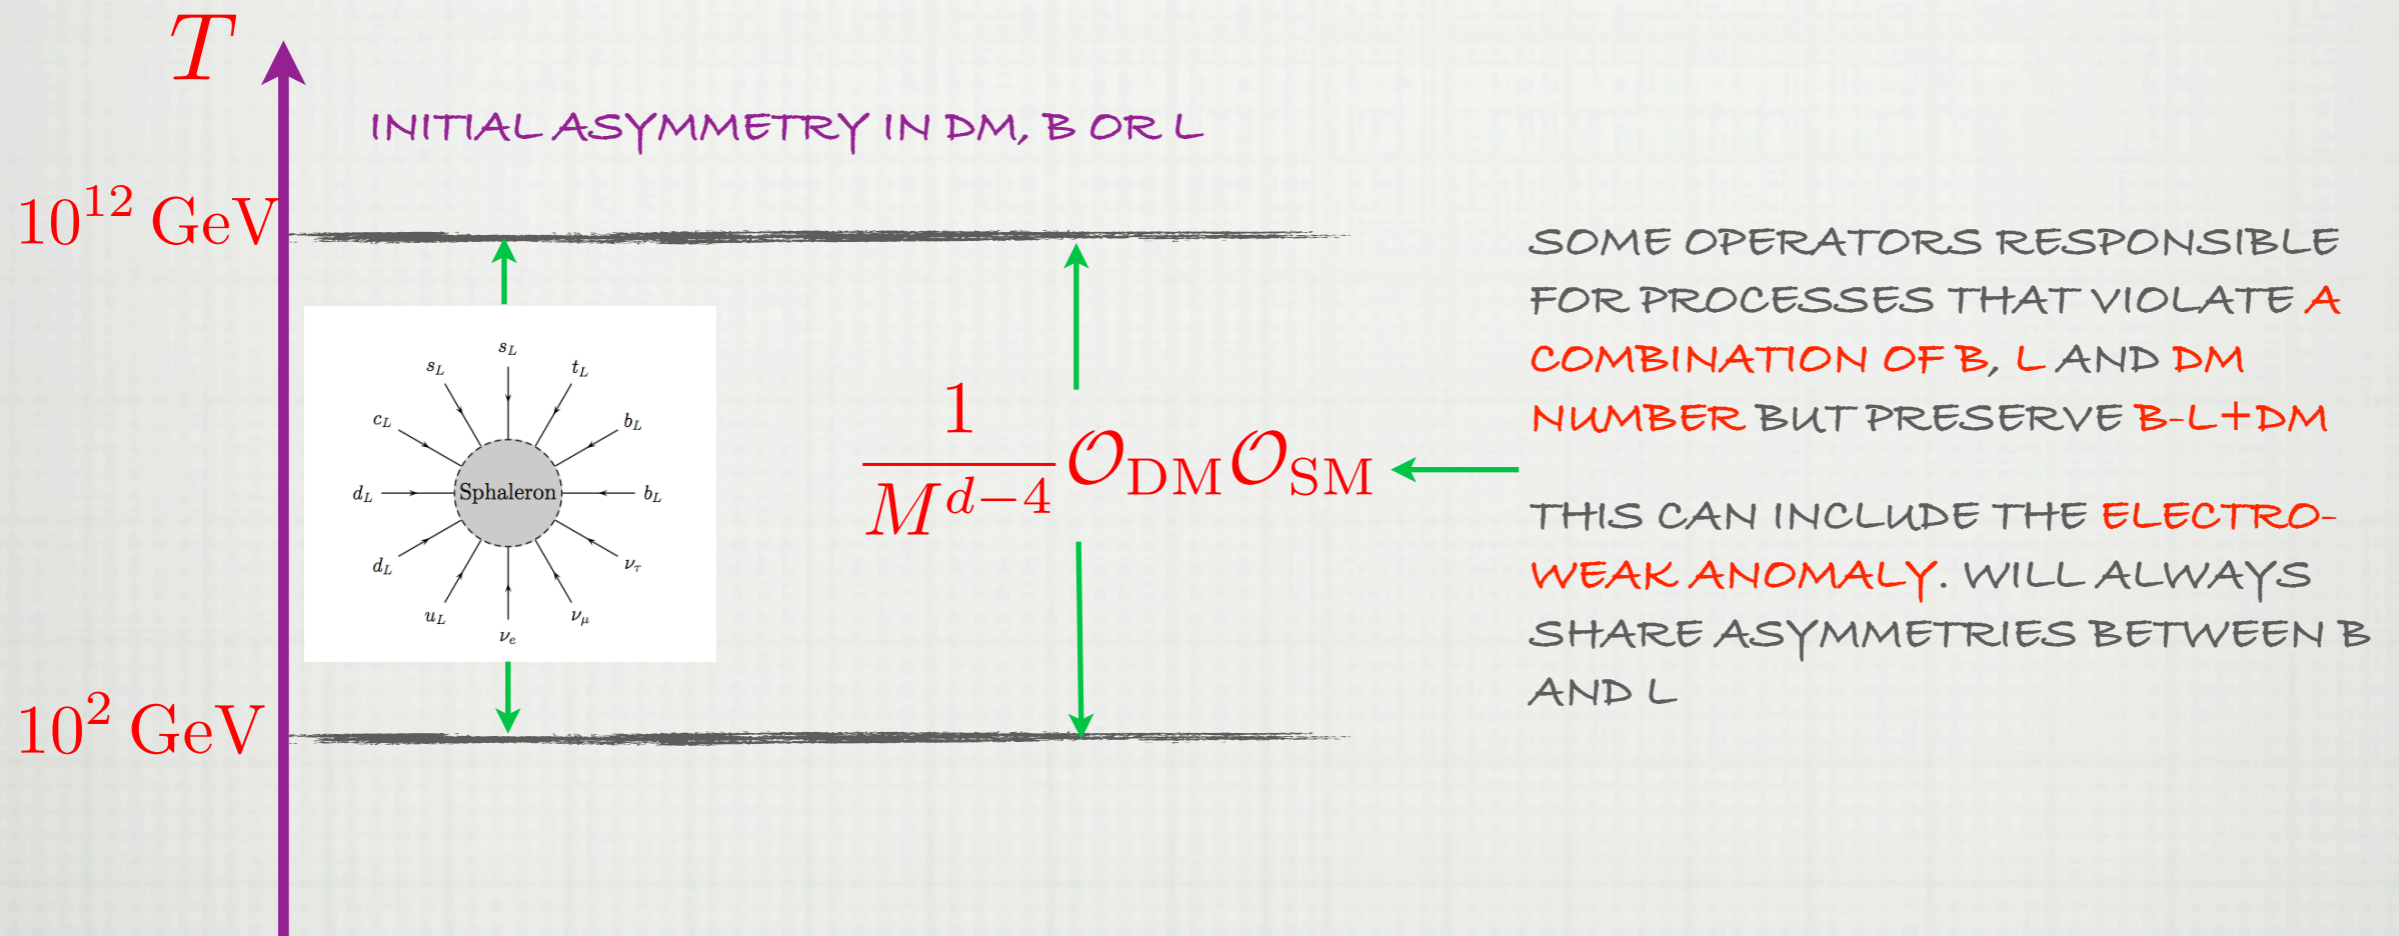 T
INITIAL ASYMMETRY IN DM, B OR L
10^{12} GeV
s_L
s_L
t_L
c_L
b_L
d_L
Sphaleron
b_L
d_L
ν_τ
u_L
ν_μ
ν_e
\frac{1}{M^{d-4}} \mathcal{O}_{DM} \mathcal{O}_{SM}
10^2 GeV
SOME OPERATORS RESPONSIBLE
FOR PROCESSES THAT VIOLATE A
COMBINATION OF B, L AND DM
NUMBER BUT PRESERVE B-L+DM
THIS CAN INCLUDE THE ELECTRO-
WEAK ANOMALY. WILL ALWAYS
SHARE ASYMMETRIES BETWEEN B
AND L